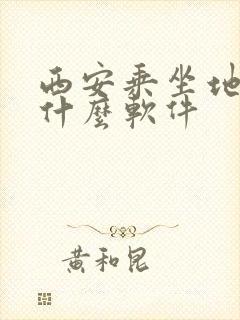 西安乘坐地
什麼軟件
黃和昆